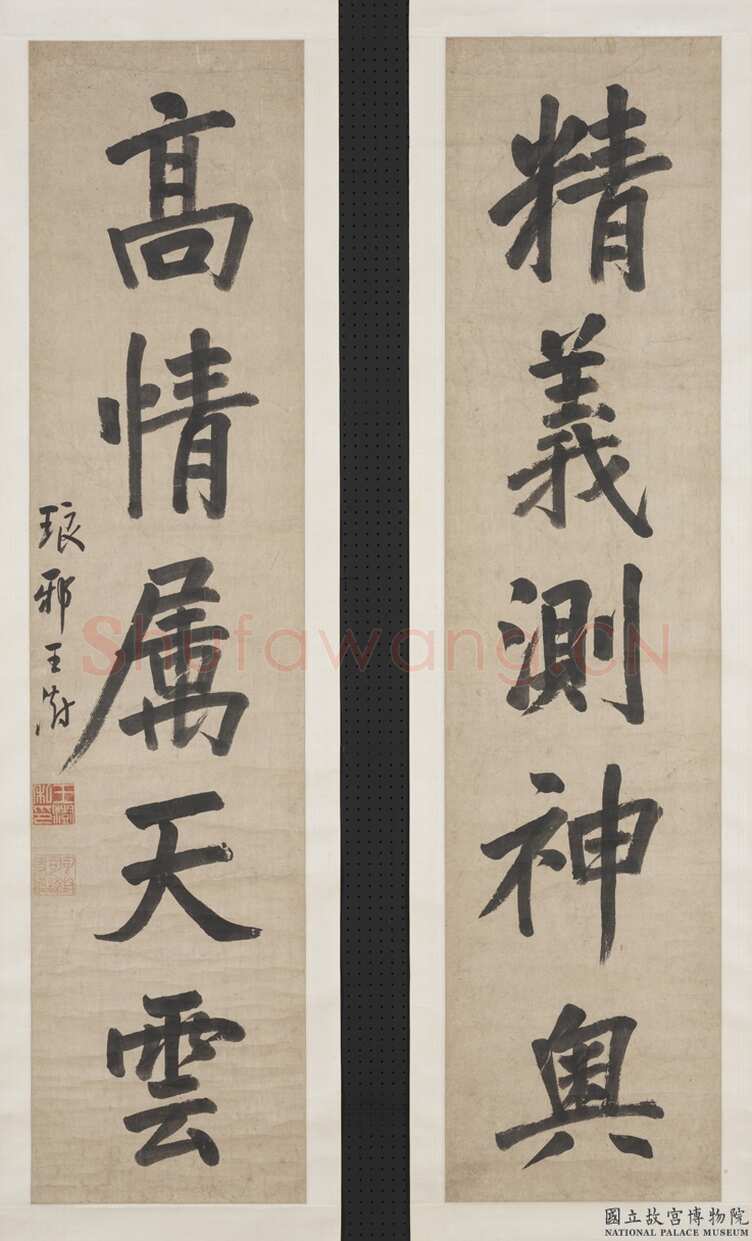 精義測神奧
高情屬天雲
琅邪王澍
王澍私印
Shufawang.CN
國立故宮博物院
NATIONAL PALACE MUSEUM